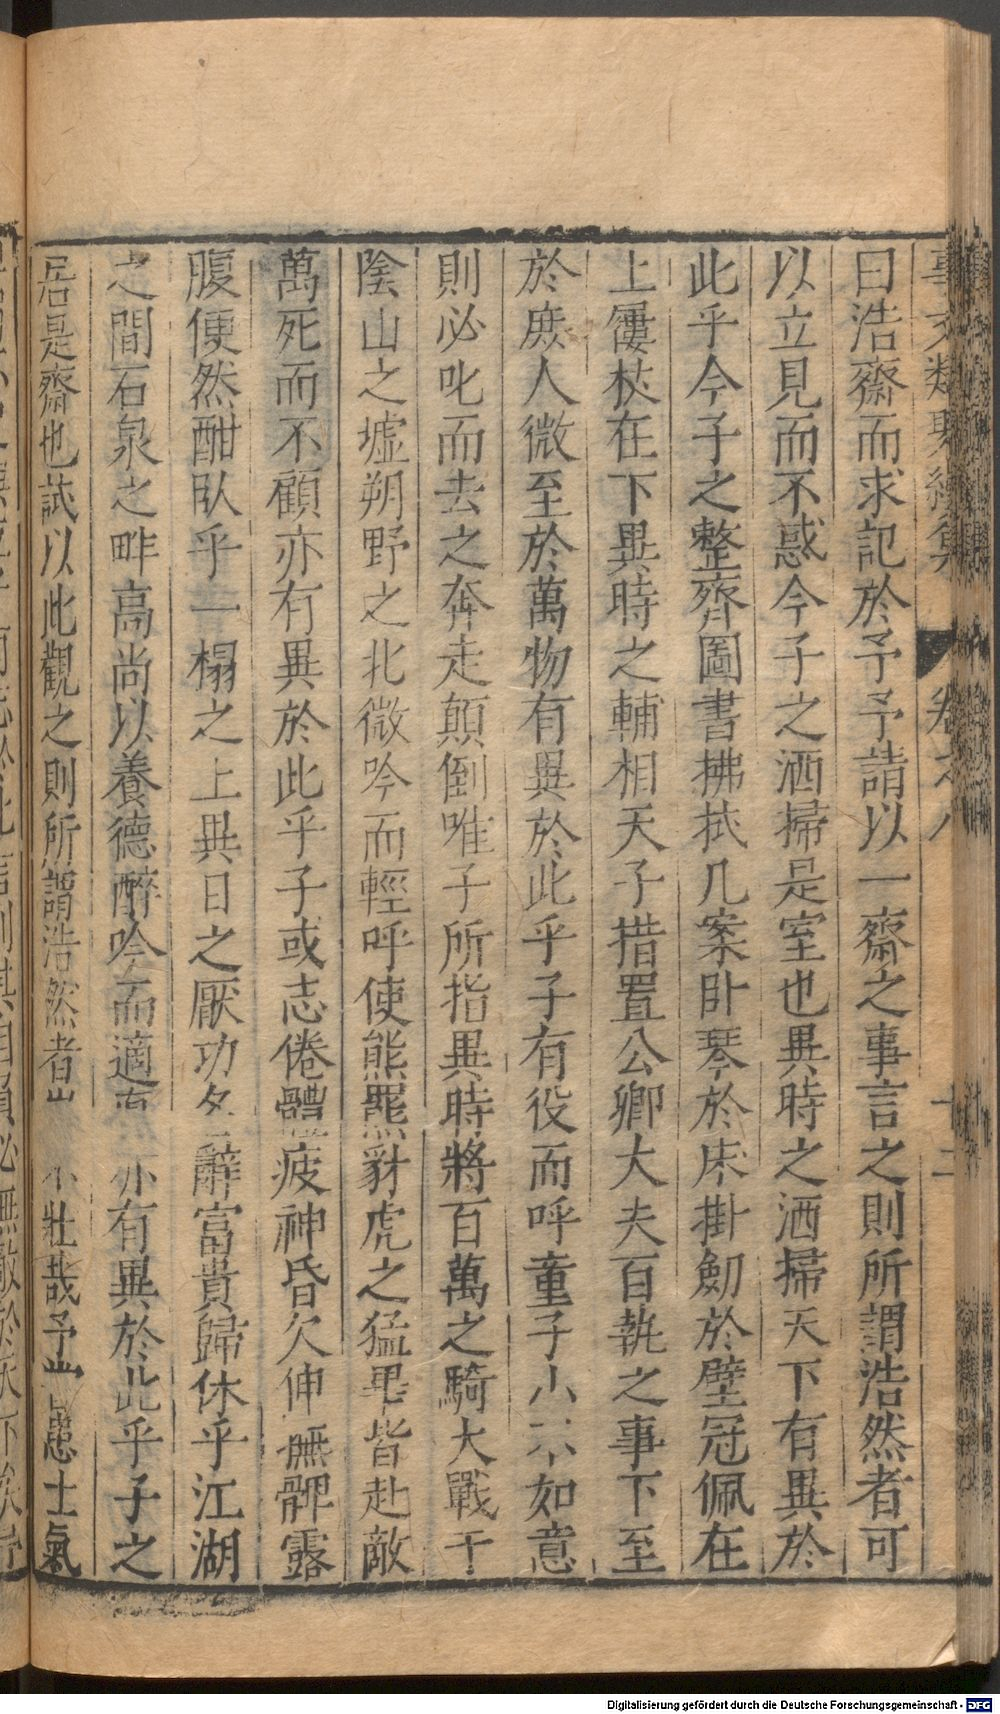 事文類聚續集 卷之八 十二
曰浩齋而求記於予予請以一齋之事言之則所謂浩然者可
以立見而不惑今子之洒掃是室也異時之洒掃天下有異於
此乎今子之整齊圖書拂拭几案卧琴於床掛劒於壁冠佩在
上屨杖在下異時之輔相天子措置公卿大夫百執之事下至
於庶人微至於萬物有異於此乎子有役而呼童子小不如意
則必叱而去之奔走顛倒唯子所指異時將百萬之騎大戰于
陰山之墟朔野之北微吟而輕呼使熊羆豺虎之猛畢皆赴敵
萬死而不顧亦有異於此乎子或志倦體疲神昏欠伸撫髀露
腹便然酣臥乎一榻之上異日之厭功名辭富貴歸休乎江湖
之間石泉之畔高尚以養德醉吟而適 亦有異於此乎子之
居是齋也試以此觀之則所謂浩然者 不壯哉予 患士氣
Digitalisierung gefördert durch die Deutsche Forschungsgemeinschaft - DFG